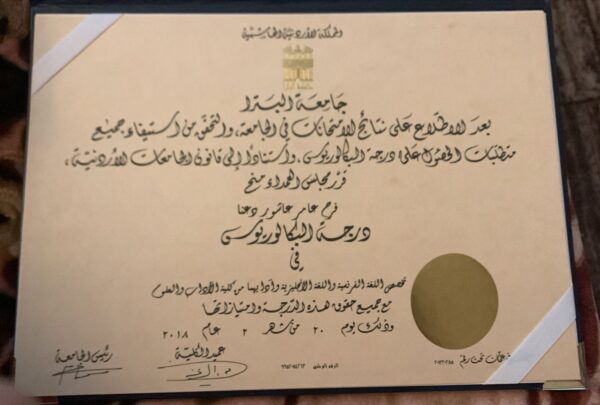 المملكة الأردنية الهاشمية
جامعة البترا
بعد الاطلاع على نتائج الامتحانات في الجامعة، والتحقق من استيفاء جميع
متطلبات الحصول على درجة البكالوريوس، واستنادًا إلى قانون الجامعات الأردنية،
قرر مجلس العمداء منح
فرح عامر عاشور دعنا
درجة البكالوريوس
في
تخصص اللغة الفرنسية واللغة الانجليزية وآدابهما من كلية الآداب والعلوم
مع جميع حقوق هذه الدرجة وامتيازاتها
وذلك يوم ٢٠ من شهر ٢ عام ٢٠١٨
عميد الكلية
رئيس الجامعة
تحت رقم
الرقم الوطني